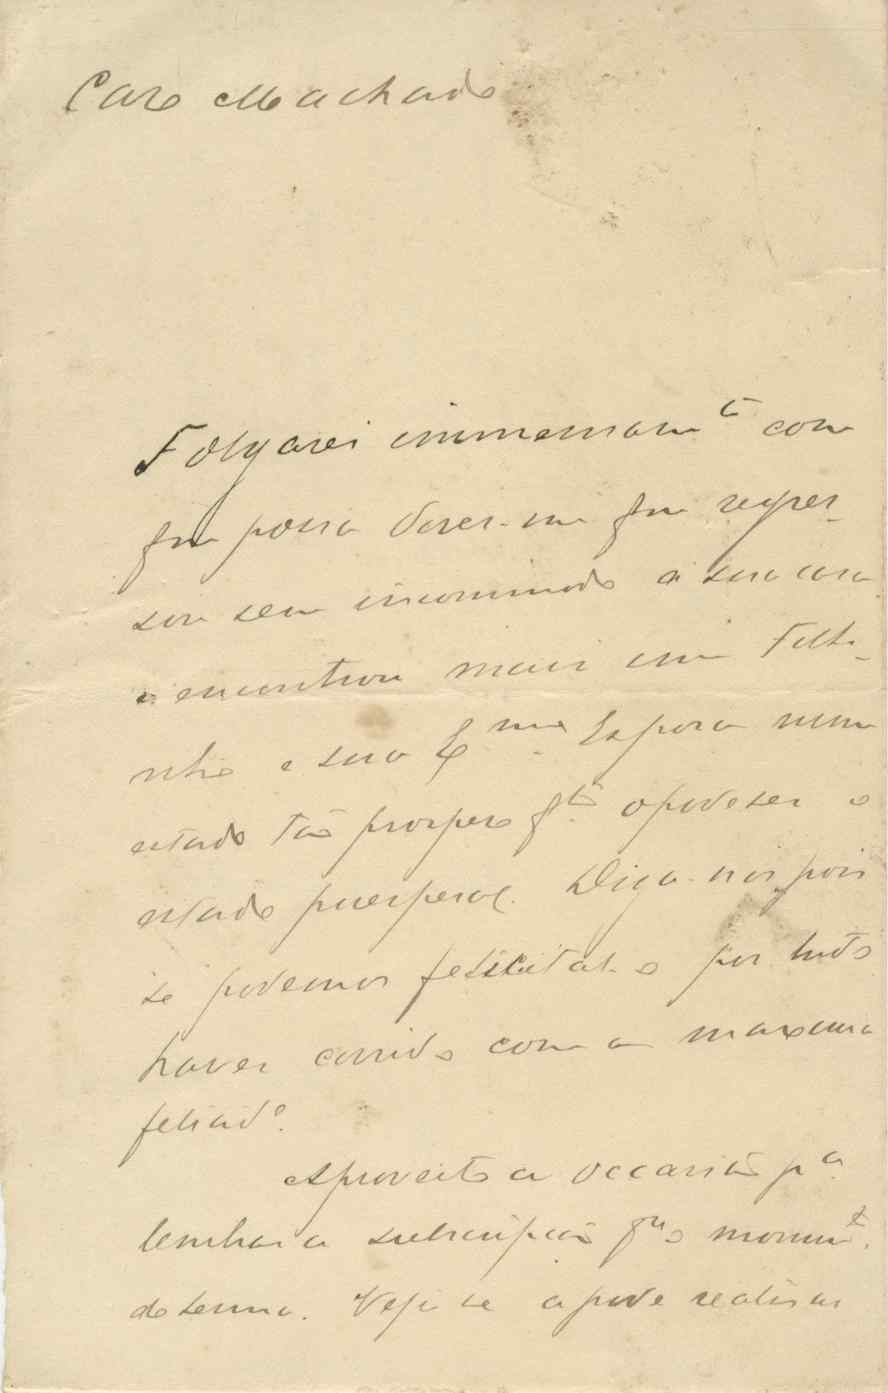 Caro Machado
Folgarei immensam.te com
que possa dizer-me que regres-
sou sem incommodo a sua casa
e encontrou mais um filhi-
nho e sua Ex.ma Esposa num
estado tão prospero q.to o pode ser o
estado puerperal. Diga-nos pois
se podemos felicital-o por tudo
haver corrido com a maxima
felicid.e
Aproveito a occasião p.a
lembrar a subscripção p.a o monum.to
do Senna. Veja se a pode realisar